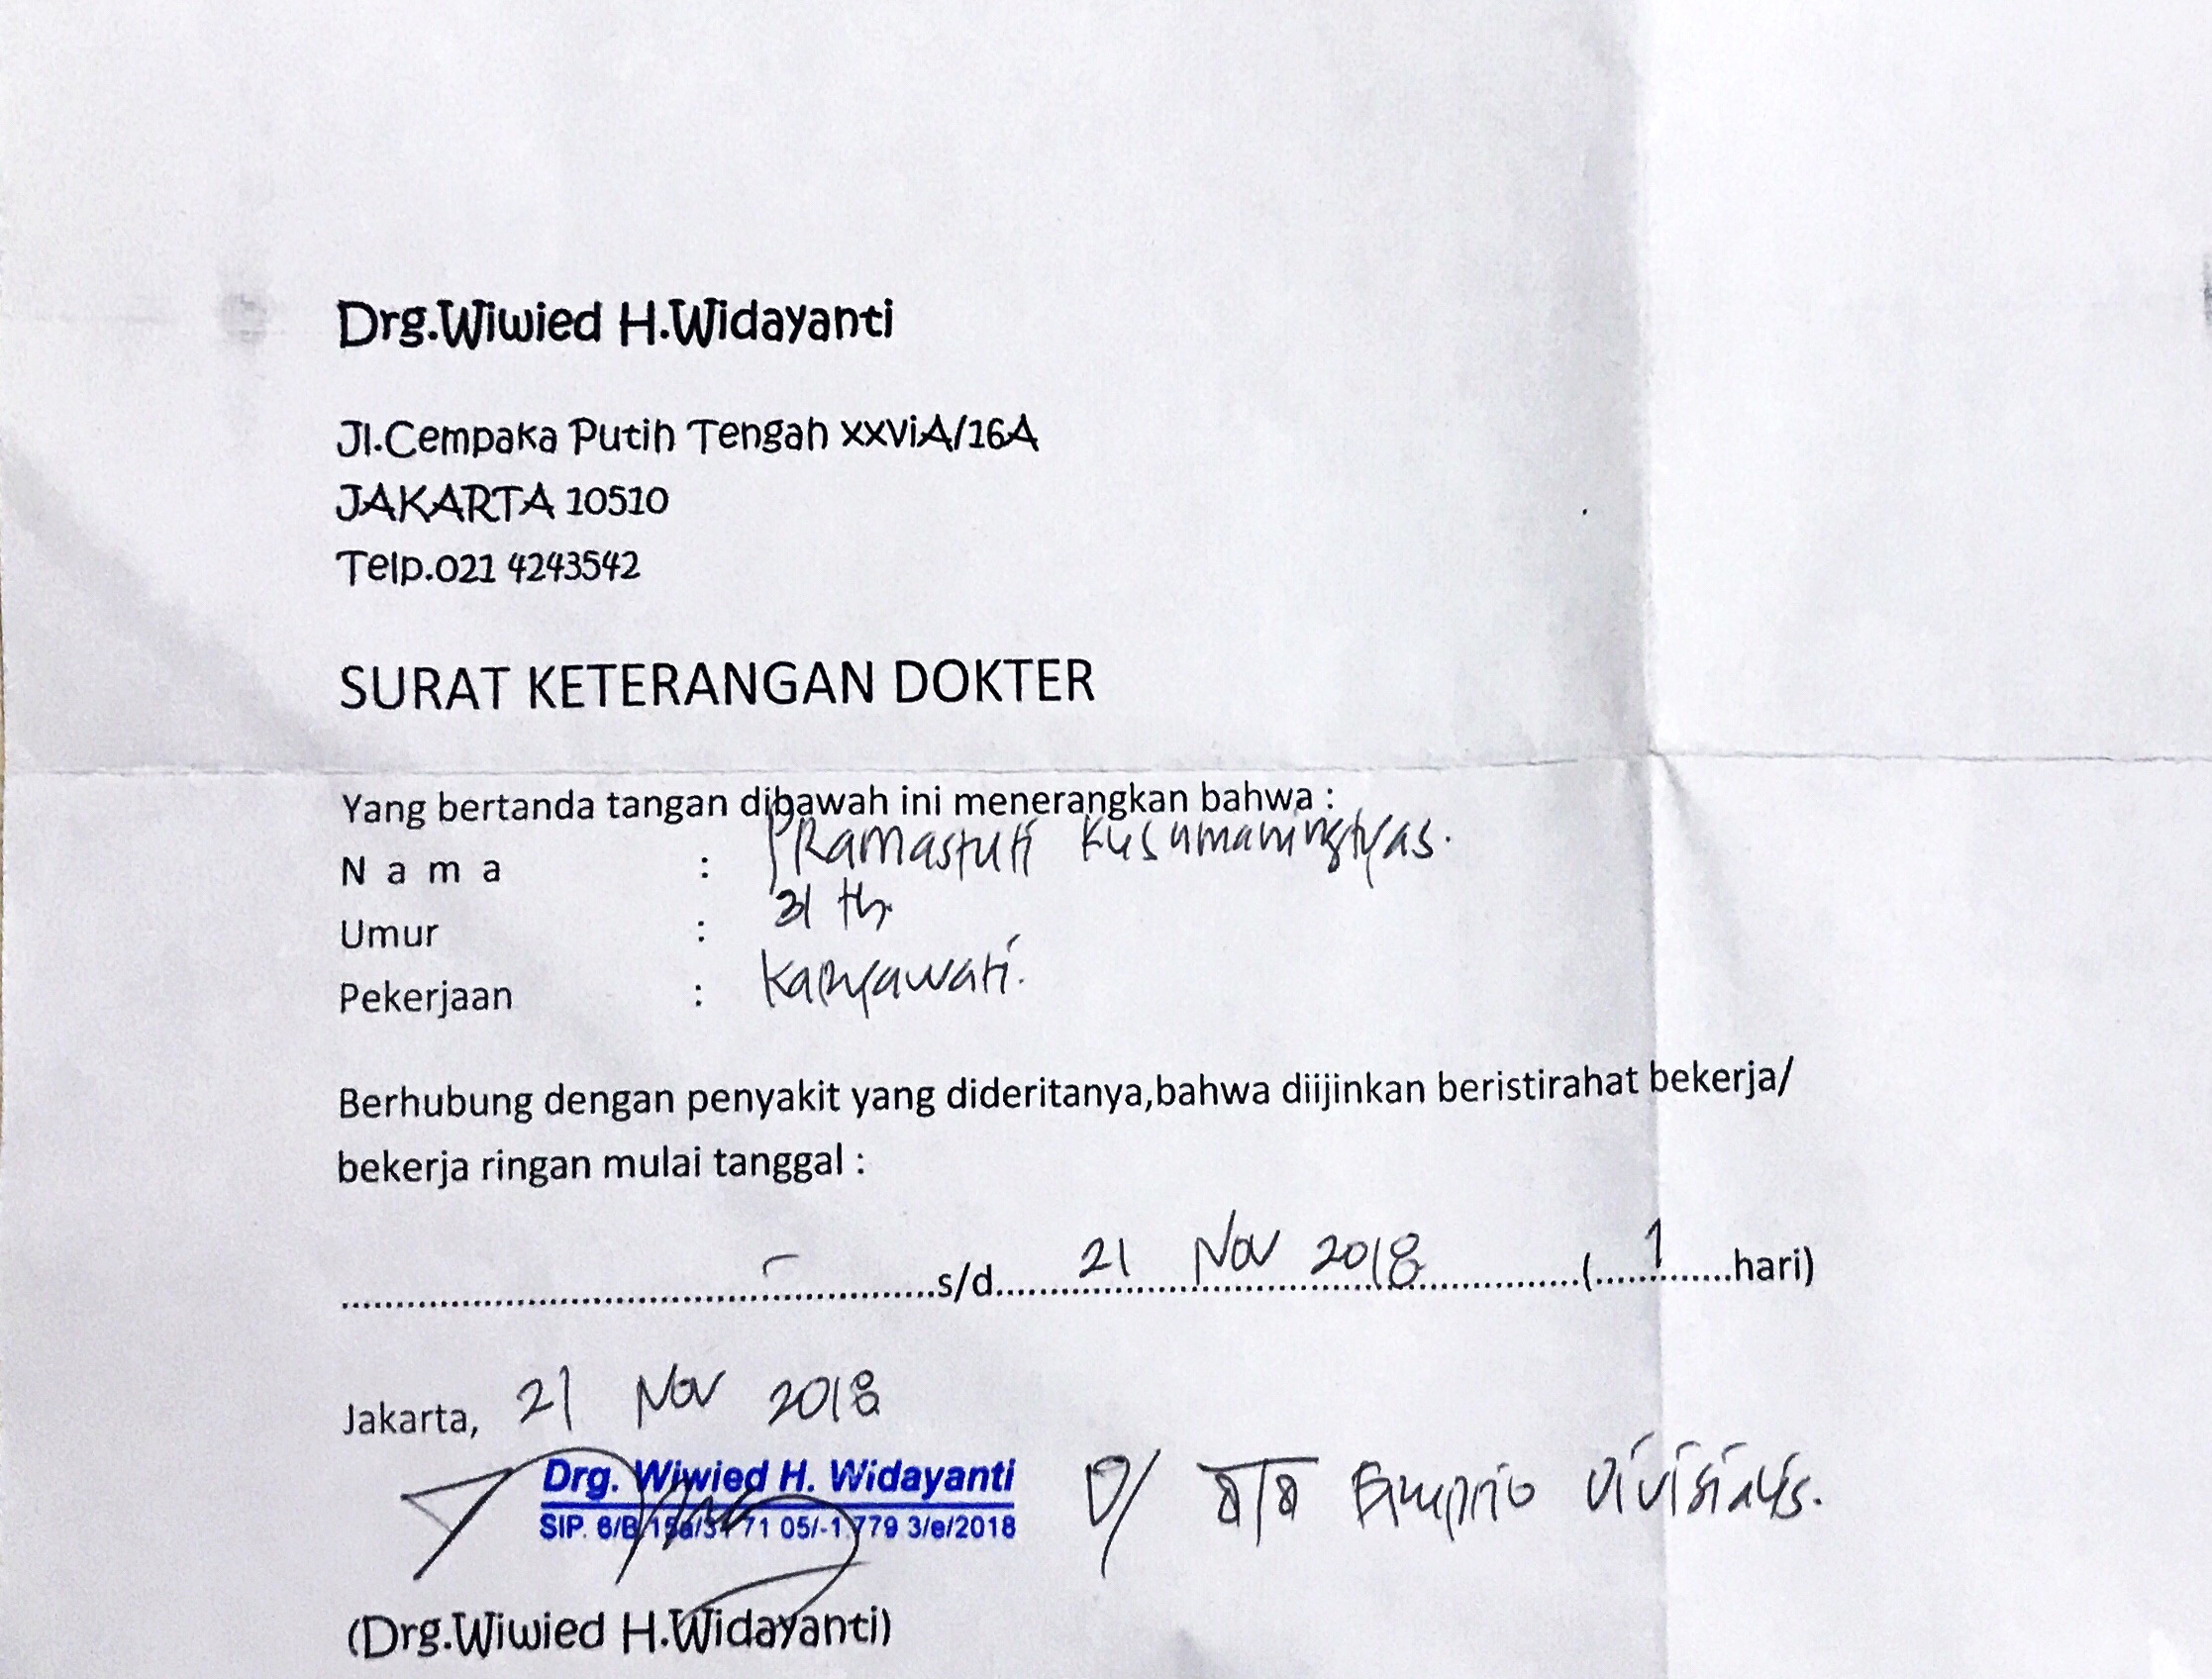 Drg.Wiwied H.Widayanti
Jl.Cempaka Putih Tengah xxviA/16A
JAKARTA 10510
Telp.021 4243542
SURAT KETERANGAN DOKTER
Yang bertanda tangan dibawah ini menerangkan bahwa :
N a m a : PRamastuti Kusumaningtyas.
Umur : 31 th
Pekerjaan : Karyawati.
Berhubung dengan penyakit yang dideritanya,bahwa diijinkan beristirahat bekerja/
bekerja ringan mulai tanggal :
- s/d 21 Nov 2018 ( 1 hari)
Jakarta, 21 Nov 2018
Drg. Wiwied H. Widayanti
SIP. 6/B 05/-1.779 3/e/2018
D/ 8/8
(Drg.Wiwied H.Widayanti)